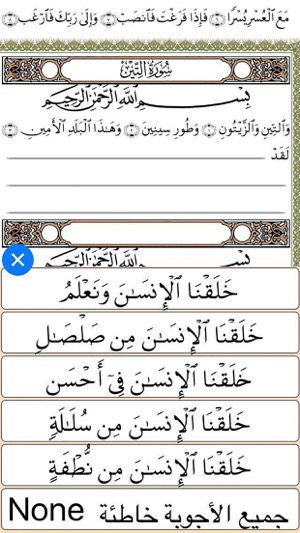 مَعَ ٱلْعُسْرِ يُسْرًا ۝٦ فَإِذَا فَرَغْتَ فَٱنصَبْ ۝٧ وَإِلَىٰ رَبِّكَ فَٱرْغَب ۝٨
سُورَةُ التِّينِ
بِسْمِ ٱللَّهِ ٱلرَّحْمَٰنِ ٱلرَّحِيمِ
وَٱلتِّينِ وَٱلزَّيْتُونِ ۝١ وَطُورِ سِينِينَ ۝٢ وَهَٰذَا ٱلْبَلَدِ ٱلْأَمِينِ ۝٣
لَقَدْ
بِسْمِ ٱللَّهِ ٱلرَّحْمَٰنِ ٱلرَّحِيمِ
خَلَقْنَا ٱلْإِنسَٰنَ وَنَعْلَمُ
خَلَقْنَا ٱلْإِنسَٰنَ مِن صَلْصَٰلٍ
خَلَقْنَا ٱلْإِنسَٰنَ فِىٓ أَحْسَنِ
خَلَقْنَا ٱلْإِنسَٰنَ مِن سُلَٰلَةٍ
خَلَقْنَا ٱلْإِنسَٰنَ مِن نُّطْفَةٍ
جميع الأجوبة خاطئة None